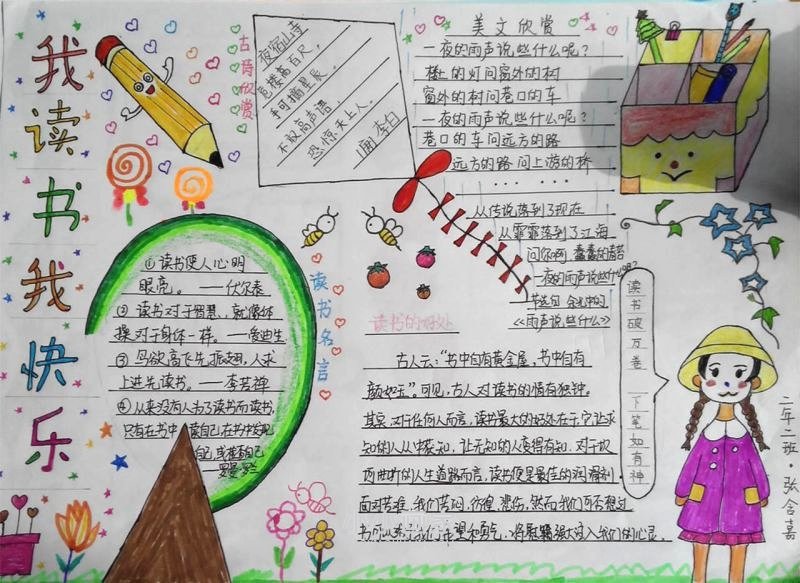 我读书我快乐
古诗欣赏
夜宿山寺
危楼高百尺，
手可摘星辰。
不敢高声语，
恐惊天上人。
［唐］李白
美文欣赏
一夜的雨声说些什么呢？
楼上的灯问窗外的树
窗外的树问巷口的车
一夜的雨声说些什么呢？
巷口的车问远方的路
远方的路问上游的桥
从传说落到了现在
从霏霏落到了江海
问你啊，蠢蠢的青苔
一夜的雨声说些什么呢？
节选自 余光中的
《雨声说些什么》
读书名言
①读书使人心明
眼亮。——伏尔泰
②读书对于智慧，就像体
操对于身体一样。——爱迪生
③鸟欲高飞先振翅，人求
上进先读书。——李若禅
④从来没有人为了读书而读书，
只有在书中读自己，在书中发现
自己，或检查自己
——罗曼·罗兰
读书的好处
古人云：“书中自有黄金屋，书中自有
颜如玉”。可见，古人对读书的情有独钟。
其实，对于任何人而言，读书最大的好处在于：它让求
知的人从中获知，让无知的人变得有知。对于坎
坷曲折的人生道路而言，读书便是最佳的润滑剂。
面对苦难，我们苦闷、彷徨、悲伤，然而我们可否想过
望和勇气，将慰藉 入我们的心灵。
读书破万卷 下笔如有神
二年二班·张含嘉